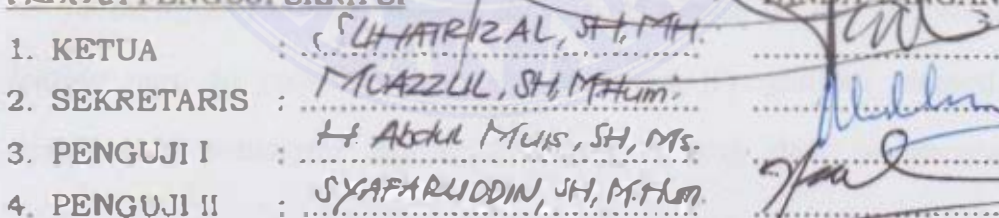 1. KETUA : SUHATRIZAL, SH, MH.
2. SEKRETARIS : MUAZZUL, SH, MHum.
3. PENGUJI I : H Abdul MUIS, SH, MS.
4. PENGUJI II : SYAFARUDDIN, SH, M.Hum.